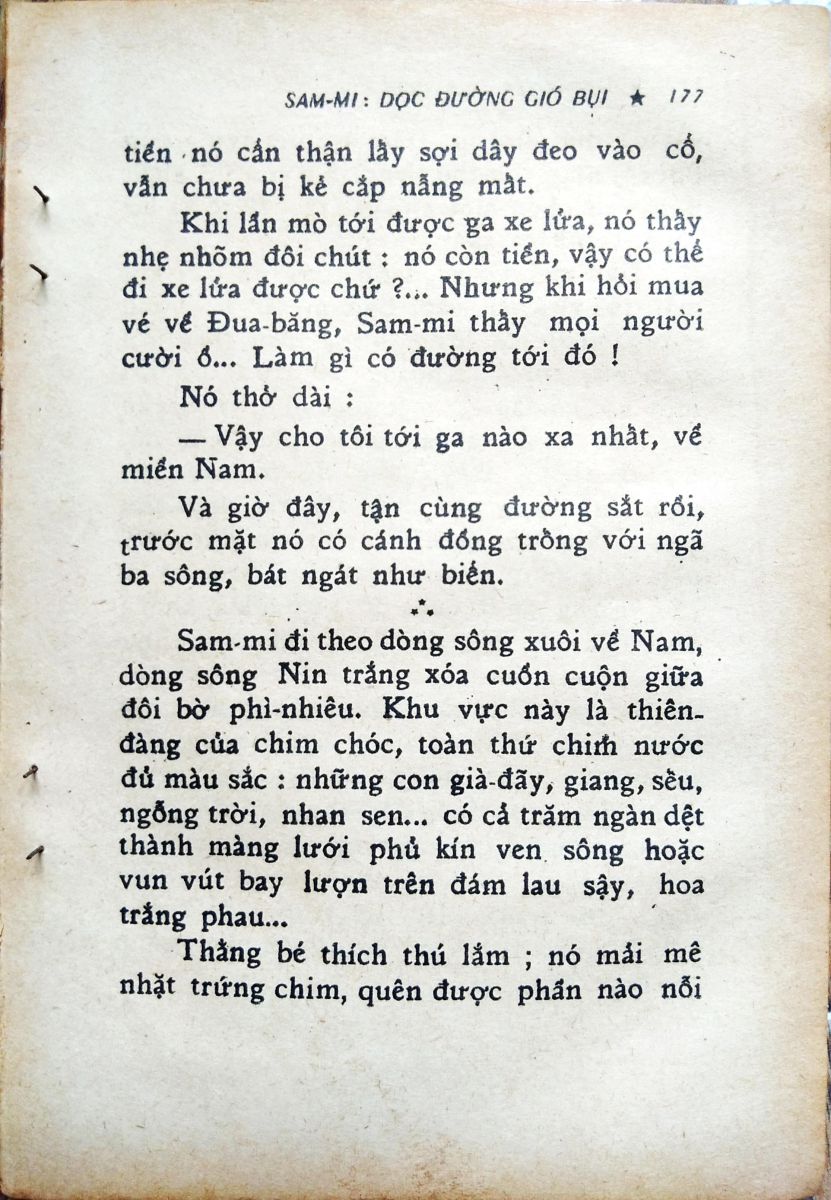 SAM-MI : DỌC ĐƯỜNG GIÓ BỤI ★ 177
tiền nó cẩn thận lấy sợi dây đeo vào cổ,
vẫn chưa bị kẻ cắp nẫng mất.
Khi lần mò tới được ga xe lửa, nó thấy
nhẹ nhõm đôi chút : nó còn tiền, vậy có thể
đi xe lửa được chứ ?... Nhưng khi hỏi mua
vé về Đua-băng, Sam-mi thấy mọi người
cười ồ... Làm gì có đường tới đó !
Nó thở dài :
— Vậy cho tôi tới ga nào xa nhất, về
miền Nam.
Và giờ đây, tận cùng đường sắt rồi,
trước mặt nó có cánh đồng trống với ngã
ba sông, bát ngát như biển.
★★★
Sam-mi đi theo dòng sông xuôi về Nam,
dòng sông Nin trắng xóa cuồn cuộn giữa
đôi bờ phì-nhiêu. Khu vực này là thiên-
đàng của chim chóc, toàn thứ chim nước
đủ màu sắc : những con già-đãy, giang, sếu,
ngỗng trời, nhan sen... có cả trăm ngàn dệt
thành màng lưới phủ kín ven sông hoặc
vun vút bay lượn trên đám lau sậy, hoa
trắng phau...
Thằng bé thích thú lắm ; nó mải mê
nhặt trứng chim, quên được phần nào nỗi